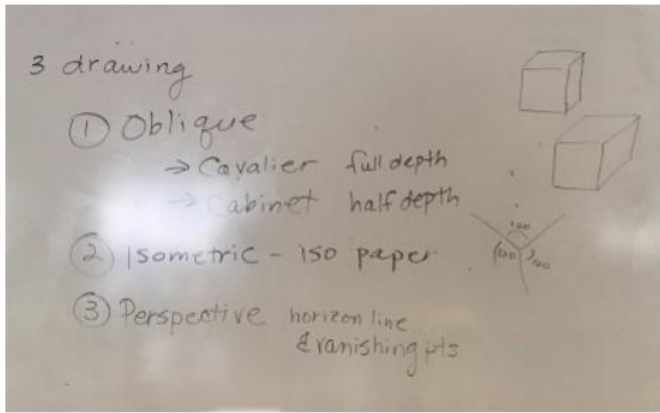 3 drawing
① Oblique
→ Cavalier full depth
→ Cabinet half depth
120
② Isometric - iso paper
(120 ) 120
③ Perspective horizon line
& vanishing pts